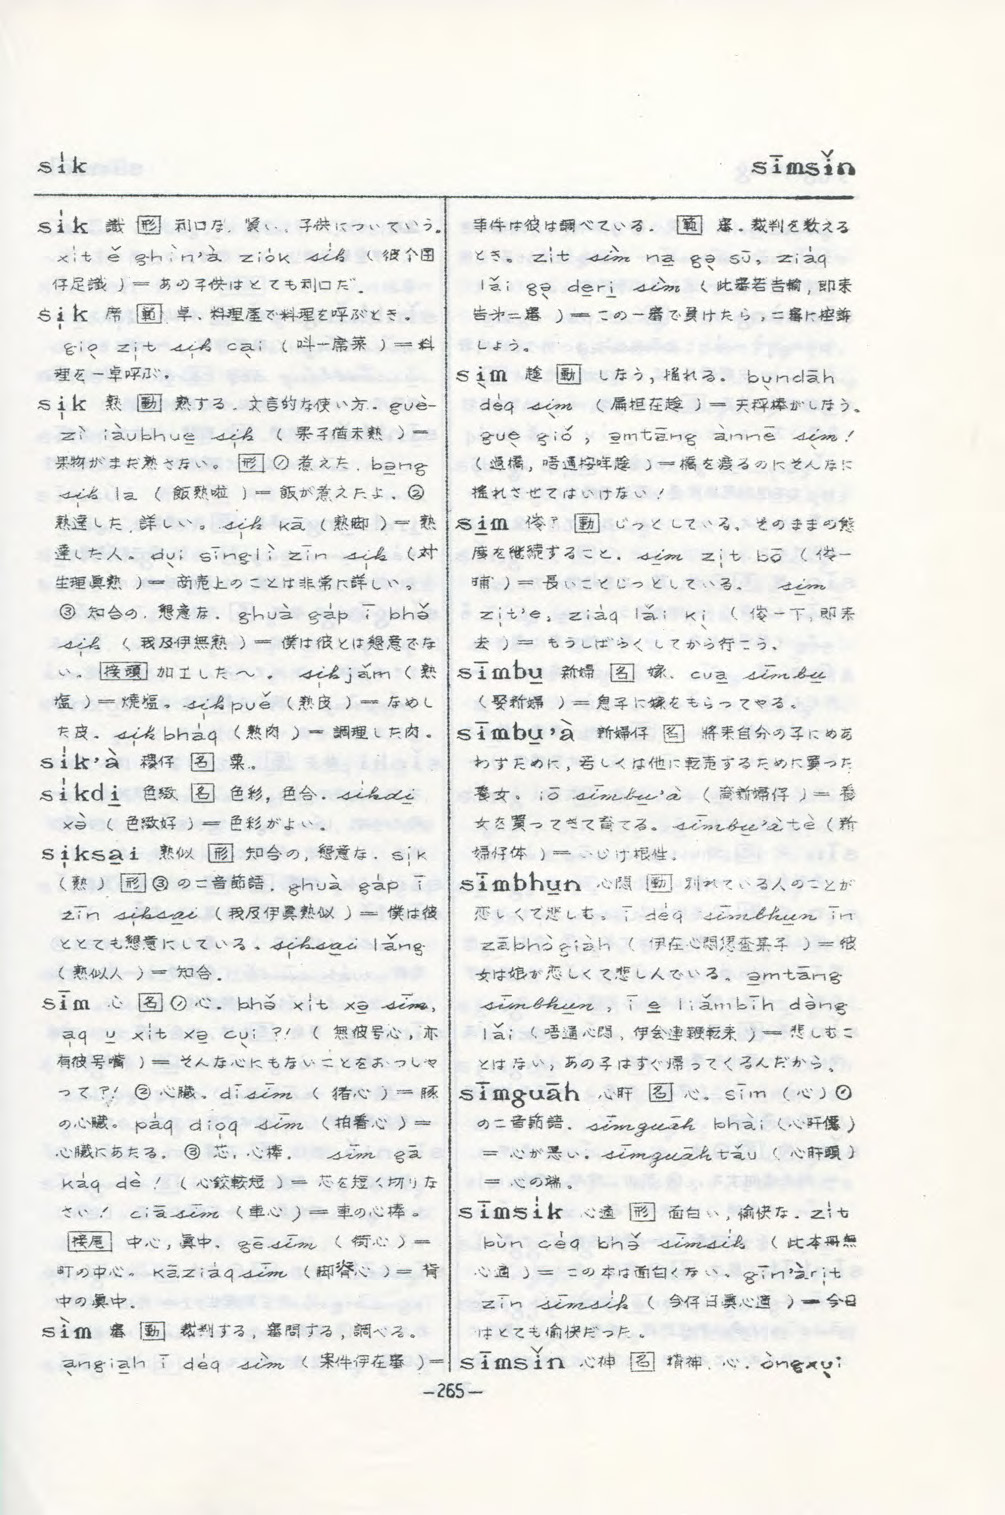 si̍k
sīmsǐn
si̍k 識 形 利口な. 賢い. 子供についていう.
xi̍t ě ghìn'à zió̍k si̍k ( 彼个囝
仔足識 ) = あの子供はとても利口だ.
si̍k 席 範 卓. 料理屋で料理を呼ぶとき.
giọ zi̍t si̍k cại ( 叫一席菜 ) = 料
理を一卓呼ぶ.
si̍k 熟 動 熟する. 文言的な使い方. guè-
zì iàubhuẹ si̍k ( 果子猶未熟 ) =
果物がまだ熟さない。 形 ① 煮えた. bang
si̍k la ( 飯熟啦 ) = 飯が煮えたよ. ②
熟達した. 詳しい。 si̍k kā ( 熟脚 ) = 熟
達した人。 dụi sīnglì zīn si̍k ( 対
生理真熟 ) = 商売上のことは非常に詳しい。
③ 知合の. 懇意な. ghuà gáp ī bhǒ
si̍k ( 我及伊無熟 ) = 僕は彼とは懇意でな
い。 接頭 加工した〜。 si̍kjám ( 熟
塩 ) = 焼塩。 si̍kpuě ( 熟皮 ) = なめし
た皮. si̍k bháq ( 熟肉 ) = 調理した肉.
sik'à 稷仔 名 粟.
sikdi 色緻 名 色彩, 色合. sikdi
xə̀ ( 色緻好 ) = 色彩がよい。
si̍ksai 熟似 形 知合の, 懇意な. si̍k
( 熟 ) 形 ③ の二音節語. ghuà gáp ī
zīn si̍ksai ( 我及伊真熟似 ) = 僕は彼
ととても懇意にしている。 si̍ksai lǎng
( 熟似人 ) = 知合.
sīm 心 名 ① 心. bhǒ xi̍t xə sīm,
aq u xi̍t xə cụi ?! ( 無彼号心, 亦
有彼号嘴 ) = そんな心にもないことをおっしゃ
って?! ② 心臓. dīsīm ( 猪心 ) = 豚
の心臓。 páq diọq sīm ( 拍着心 ) =
心臓にあたる. ③ 芯, 心棒. sīm gā
káq dè ! ( 心鉸較短 ) = 芯を短く切りな
さい! ciāsīm ( 車心 ) = 車の心棒。
接尾 中心, 真中. gēsīm ( 街心 ) =
町の中心. kāziáqsīm ( 脚脊心 ) = 背
中の真中.
sìm 審 動 裁判する, 審問する, 調べる.
ạngiah ī déq sìm ( 案件伊在審 ) =
事件は彼は調べている. 範 審. 裁判を数える
とき。 zi̍t sìm na gə sū, ziáq
lǎi gə deri sìm ( 此審若告輸, 即来
告第二審 ) = この一審で負けたら, 二審に控訴
しよう。
sịm 動 しなう, 揺れる. bụndāh
déq sịm = 天秤棒がしなう。
guẹ giǒ, əmtāng ànnē sịm !
= 橋を渡るのにそんなに
揺れさせてはいけない!
sim 動 じっとしている. そのままの態
度を継続すること. sim zi̍t bō
= 長いことじっとしている. sim
zi̍t'e, ziáq lǎi kị
= もうしばらくしてから行こう.
sīmbu 新婦 名 嫁. cua sīmbu
( 娶新婦 ) = 息子に嫁をもらってやる.
sīmbu'à 新婦仔 名 将来自分の子にめあ
わすために, 若しくは他に転売するために買った
養女. iō sīmbu'à = 養
女を買ってきて育てる。 sīmbu'àtè ( 新
婦仔体 ) = いじけ根性.
sīmbhun 心悶 動 別れている人のことが
恋しくて悲しむ. ī déq sīmbhun īn
zābhògiàh = 彼
女は娘が恋しくて悲しんでいる. əmtāng
sīmbhun, ī e liǎmbīh dèng
lǎi ( 唔通心悶, 伊会連鞭転来 ) = 悲しむこ
とはない, あの子はすぐ帰ってくるんだから.
sīmguāh 心肝 名 心. sīm ( 心 ) ①
の二音節語. sīmguāh bhài
= 心が悪い. sīmguāhtǎu ( 心肝頭 )
= 心の端.
sīmsik 心適 形 面白い, 愉快な. zi̍t
bùn céq bhǒ sīmsik ( 此本冊無
心適 ) = この本は面白くない. gīn'àrit
zīn sīmsik ( 今仔日真心適 ) = 今日
はとても愉快だった.
sīmsǐn 心神 名 精神. 心. òngxụi
—265—